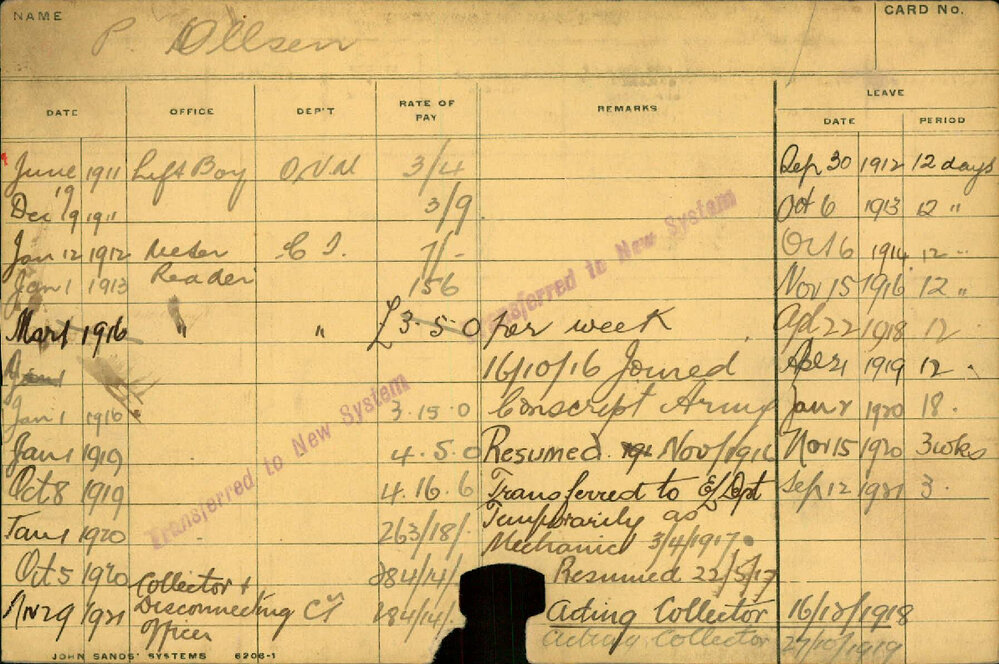 NAME P. Ollsen CARD No.
DATE OFFICE DEP'T RATE OF PAY REMARKS LEAVE
DATE PERIOD
June 1911 Lift Boy 3/4 Sep 30 1912 12 days
Dec 19 1911 3/9 Oct 6 1913 12 "
Jan 12 1912 Meter C I. 7/- Oct 6 1914 12 "
Jan 1 1913 Reader 156 Nov 15 1916 12 "
Mar 1 1916 " " £3-5-0 per week Apl 22 1918 12
Jan 1 16/10/16 Joined 21 1919 12
Jan 1 1916 3.15.0 Conscript Army Jan 1920 18
Jan 1 1919 4.5.0 Resumed Nov/1916 Nov 15 1920 3 wks
Oct 8 1919 4.16.6 Transferred to E/Dept Sep 12 1921 3
Temporarily as
Jan 1 1920 263/18/- Mechanic 3/4/1917.
Oct 5 1920 Collector + 284/14/- Resumed 22/5/17
Nov 29 1921 Disconnecting 284/14/- Acting Collector 16/12/1918
Officer Acting Collector 27/10/1919
Transferred to New System
Transferred to New System
JOHN SANDS' SYSTEMS 6206-1